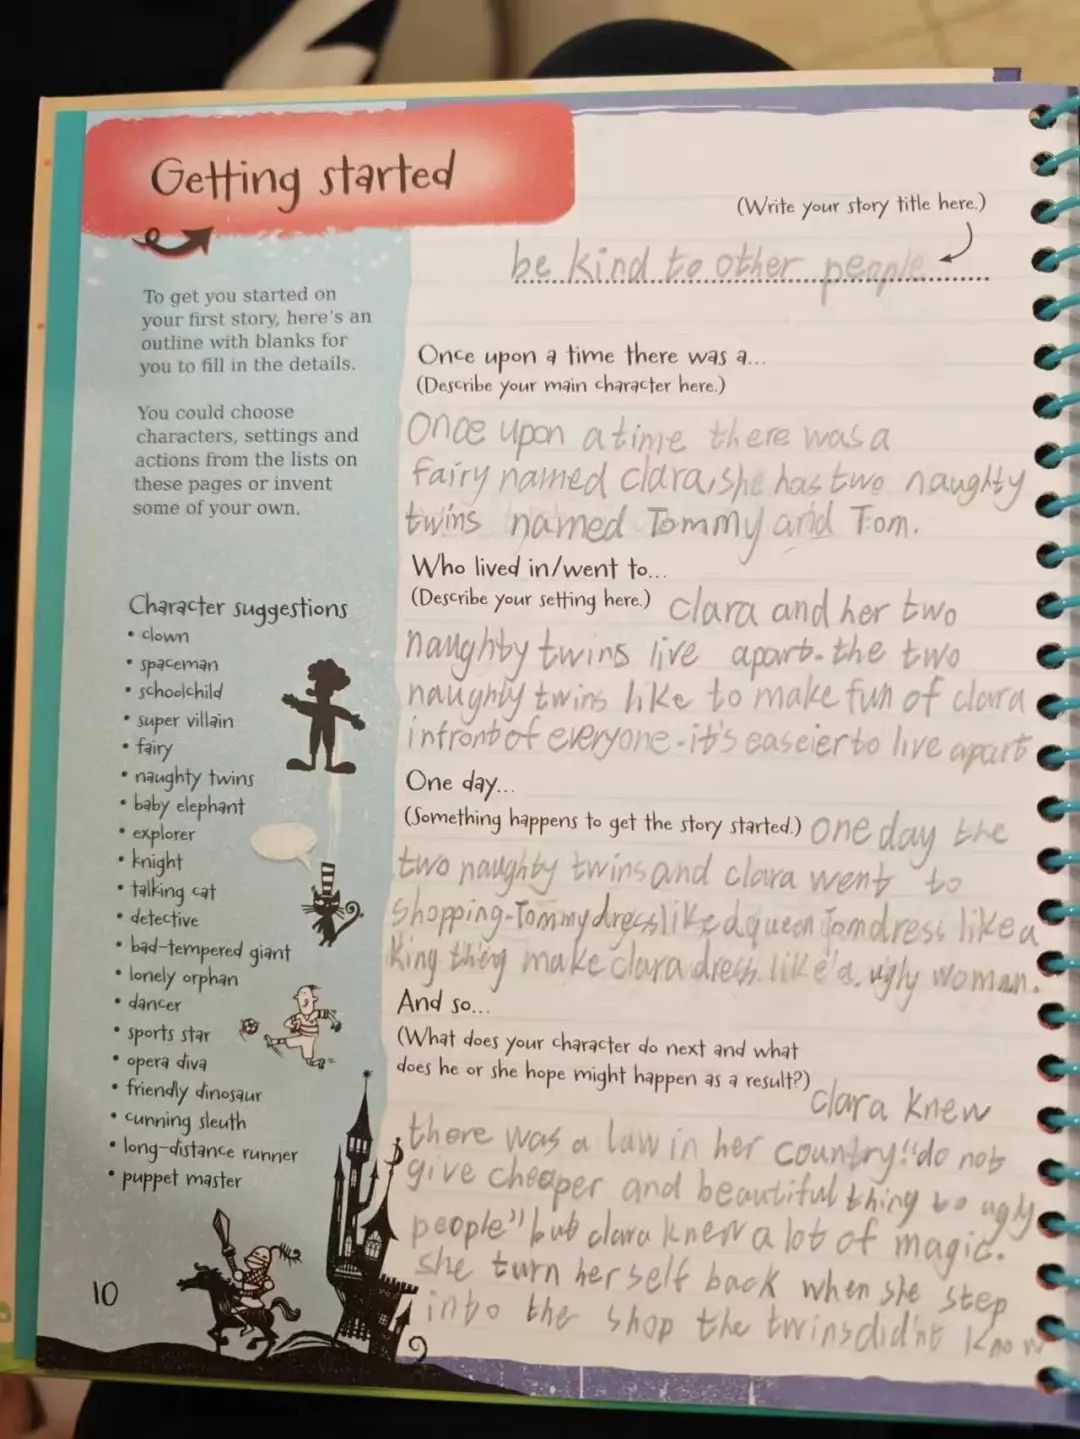 Getting started
To get you started on
your first story, here's an
outline with blanks for
you to fill in the details.
You could choose
characters, settings and
actions from the lists on
these pages or invent
some of your own.
Character suggestions
• clown
• spaceman
• schoolchild
• super villain
• fairy
• naughty twins
• baby elephant
• explorer
• knight
• talking cat
• detective
• bad-tempered giant
• lonely orphan
• dancer
• sports star
• opera diva
• friendly dinosaur
• cunning sleuth
• long-distance runner
• puppet master
10
(Write your story title here.)
be kind to other people
Once upon a time there was a...
(Describe your main character here.)
Once upon a time there was a
fairy named clara, she has two naughty
twins named Tommy and Tom.
Who lived in/went to...
(Describe your setting here.) clara and her two
naughty twins live apart. the two
naughty twins like to make fun of clara
infront of everyone. it's easeier to live apart
One day...
(Something happens to get the story started.) one day the
two naughty twins and clara went to
shopping. Tommy dress like a queen Tom dress like a
king they make clara dress like a ugly woman.
And so...
(What does your character do next and what
does he or she hope might happen as a result?)
clara knew
there was a law in her country! "do not
give cheaper and beautiful thing to ugly
people" but clara knew a lot of magic.
she turn her self back when she step
into the shop the twins did'nt know